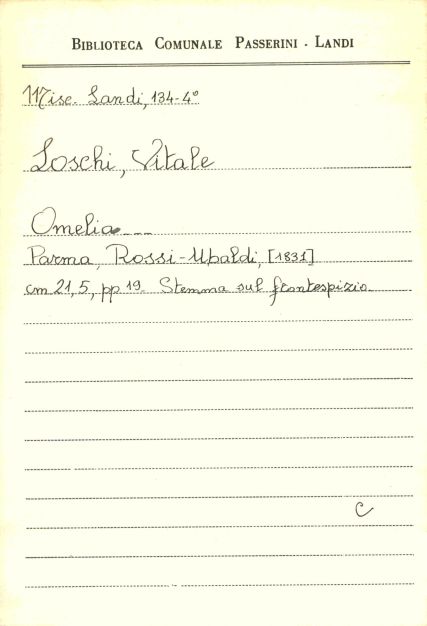 BIBLIOTECA COMUNALE PASSERINI - LANDI
Misc. Landi, 134-4°
Loschi, Vitale
Omelia...
Parma, Rossi-Ubaldi, [1831]
cm 21,5, pp 19. Stemma sul frontespizio.
C